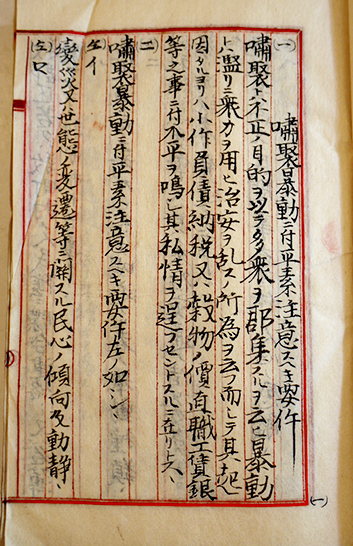 嘯聚暴動ニ付平素注意スヘキ要件
(一)
嘯聚トハ不正ノ目的ヲ以テ多衆ヲ部集スルヲ云ヒ暴動
トハ盟リニ衆力ヲ用ヒ治安ヲ乱スノ行為ヲ云フ而シテ其起
因タルヨリハ小作負債納税又ハ穀物ノ價直職工賃銀
等之事ニ付不平ヲ鳴シ其私情ヲ逞フセントスルニ在リトス、
(二)
嘯聚暴動ニ付平素注意スヘキ要件左ノ如シ、
(左)イ
變災又ハ世態ノ変遷等ニ関スル民心ノ傾向及動静、
(左)ロ
(一)